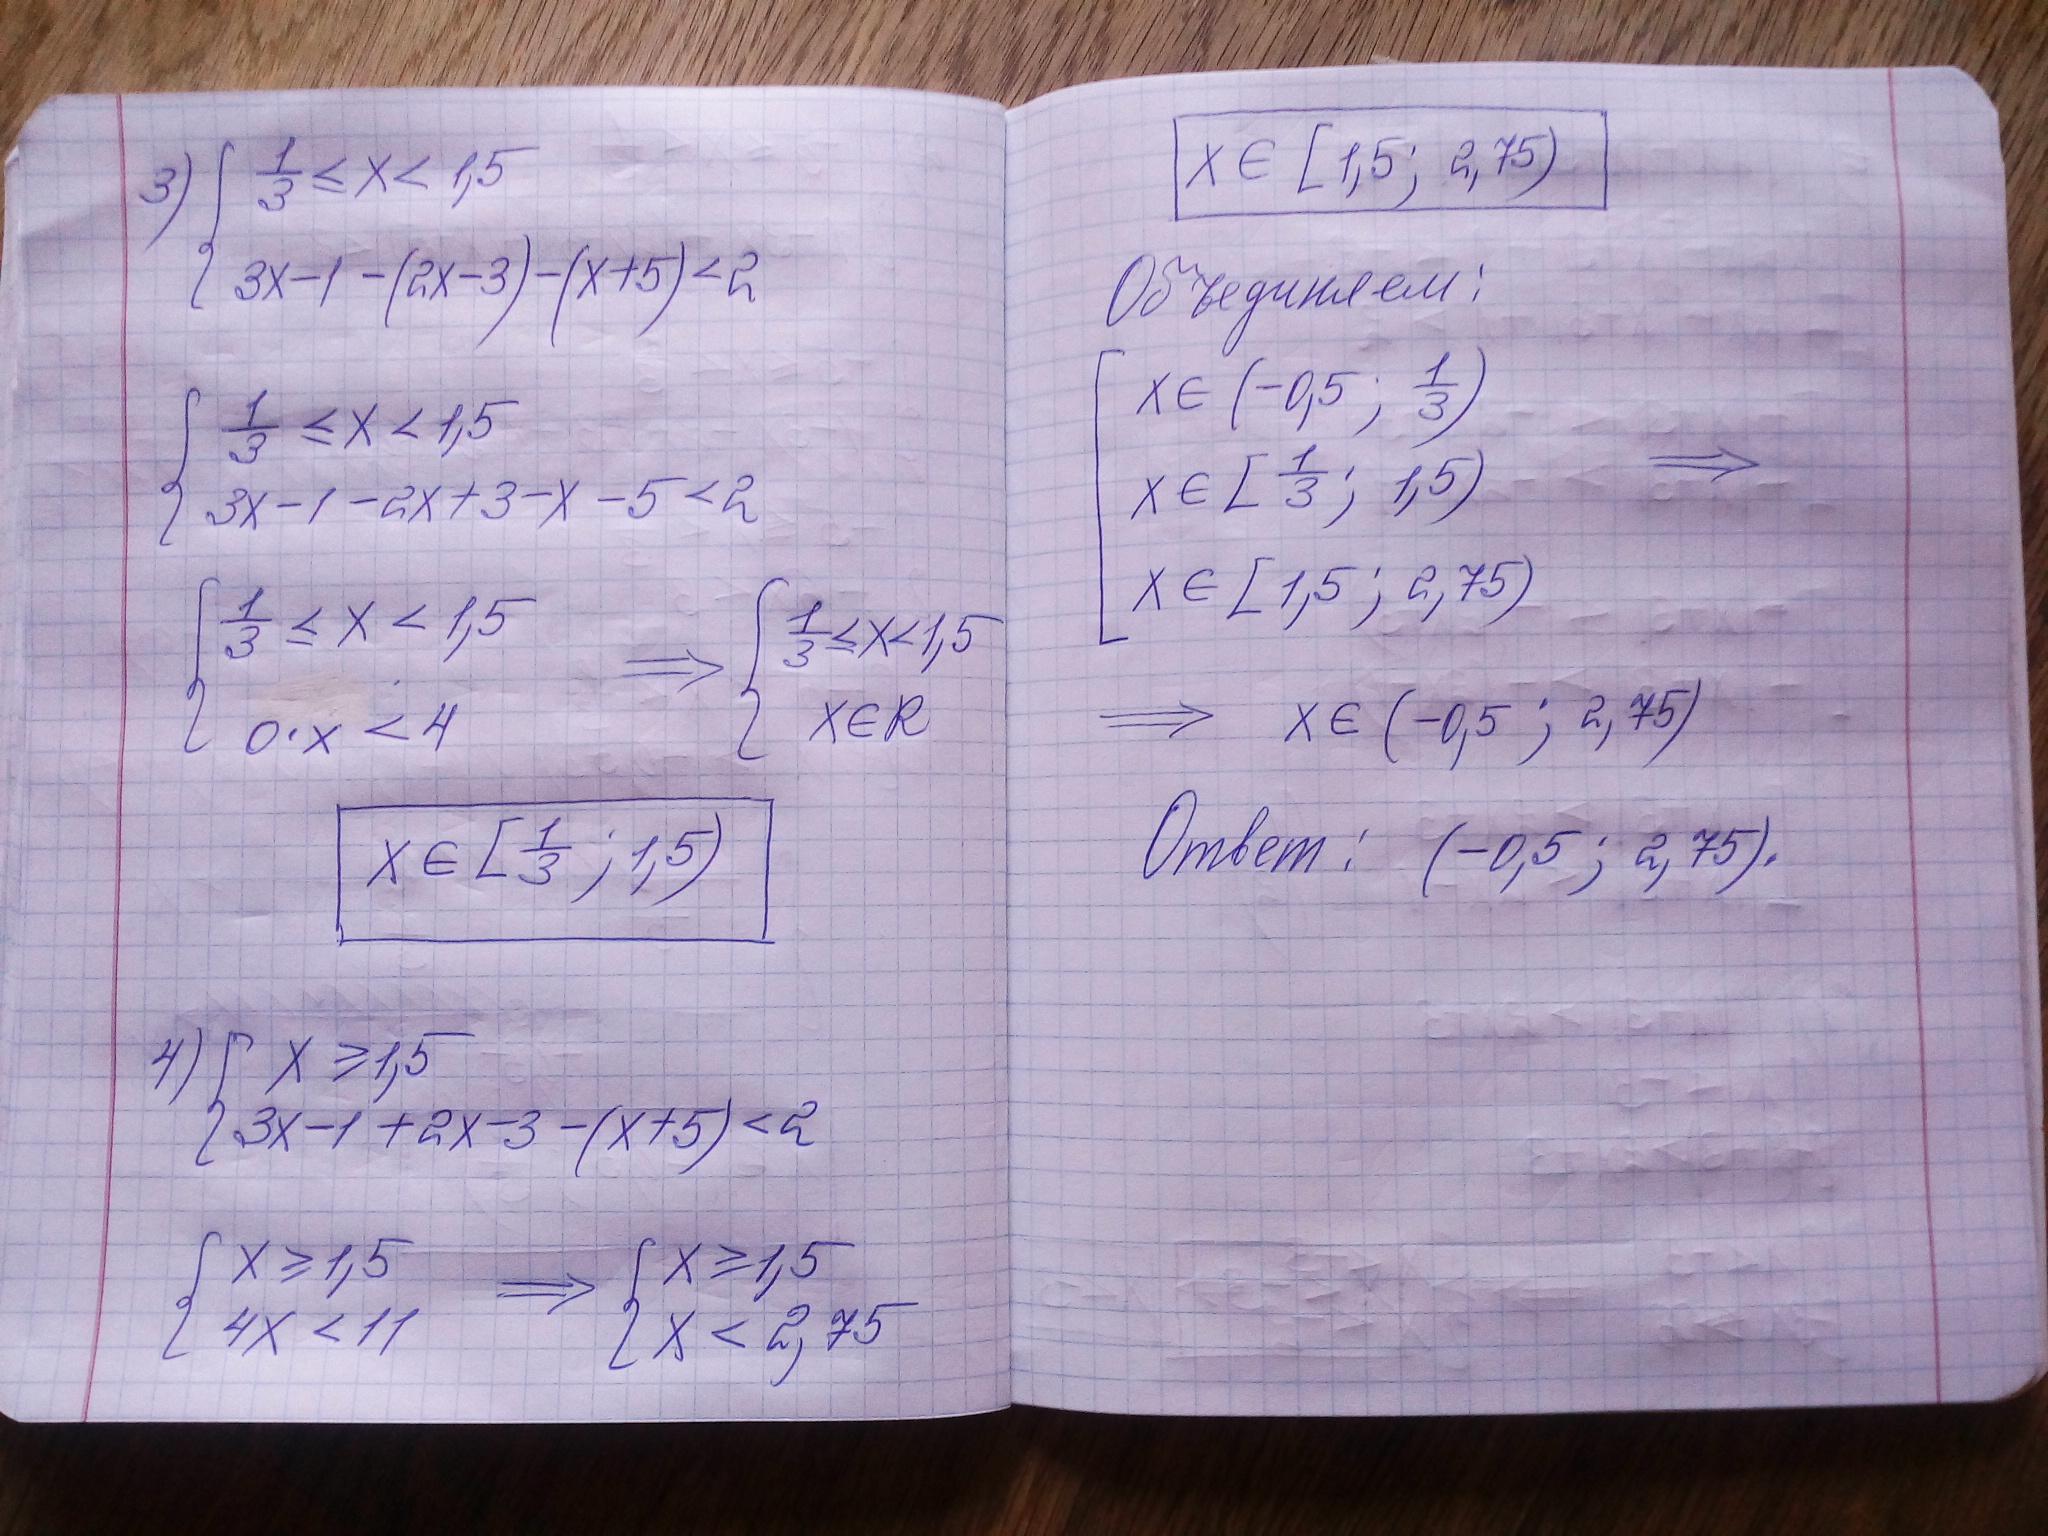 3) { 1/3 ≤ x < 1,5
3x-1-(2x-3)-(x+5)<2
{ 1/3 ≤ x < 1,5
3x-1-2x+3-x-5<2
{ 1/3 ≤ x < 1,5 ⟹ { 1/3 ≤ x < 1,5
0·x < 4 x∈R
x∈[1/3; 1,5)
4) { x ≥ 1,5
3x-1+2x-3-(x+5)<2
{ x ≥ 1,5 ⟹ { x ≥ 1,5
4x < 11 x < 2,75
x∈[1,5; 2,75)
Объединяем:
[ x∈(-0,5; 1/3)
x∈[1/3; 1,5) ⟹
x∈[1,5; 2,75)
⟹ x∈(-0,5; 2,75)
Ответ: (-0,5; 2,75).